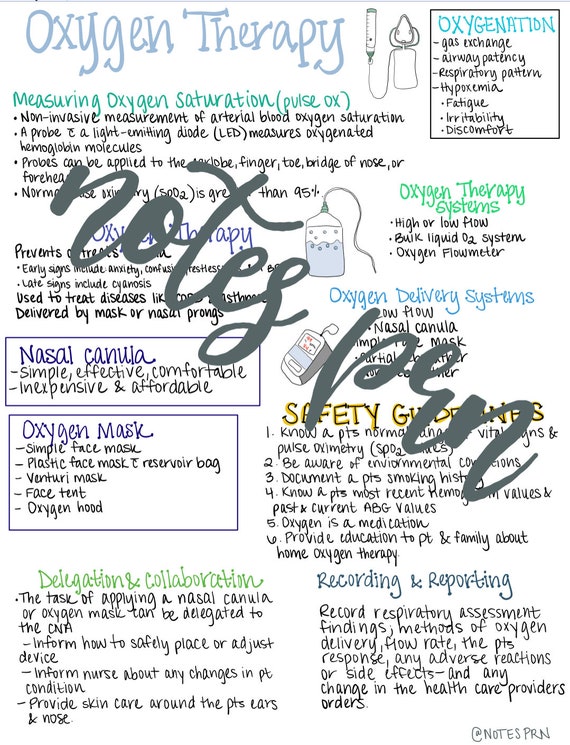 Oxygen Therapy
OXYGENATION
- gas exchange
- airway patency
- Respiratory pattern
- Hypoxemia
• Fatigue
• Irritability
• Discomfort
Measuring Oxygen Saturation (pulse ox)
• Non-invasive measurement of arterial blood oxygen saturation
• A probe c̄ a light-emitting diode (LED) measures oxygenated
hemoglobin molecules
• Probes can be applied to the earlobe, finger, toe, bridge of nose, or
forehead
• Normal pulse oximetry (SpO2) is greater than 95%
Oxygen Therapy
Systems
• High or low flow
• Bulk liquid O2 system
• Oxygen Flowmeter
Oxygen Therapy
Prevents or treats
• Early signs include anxiety, confusion, restlessness
• Late signs include cyanosis
Used to treat diseases like COPD & asthma
Delivered by mask or nasal prongs
Oxygen Delivery Systems
Low flow
• Nasal canula
Simple face mask
Partial rebreather
Nasal Canula
- Simple, effective, comfortable
- Inexpensive & affordable
Oxygen Mask
- Simple face mask
- Plastic face mask c̄ reservoir bag
- Venturi mask
- Face tent
- Oxygen hood
SAFETY GUIDELINES
1. Know a pts normal range of vital signs &
pulse oximetry (SpO2 values)
2. Be aware of enviornmental conditions
3. Document a pts smoking history
4. Know a pts most recent Hemoglobin values &
past & current ABG values
5. Oxygen is a medication
6. Provide education to pt & family about
home oxygen therapy.
Delegation & Collaboration
• The task of applying a nasal canula
or oxygen mask can be delegated to
the CNA
- Inform how to safely place or adjust
device
- Inform nurse about any changes in pt
condition
- Provide skin care around the pts ears
& nose.
Recording & Reporting
Record respiratory assessment
findings, methods of oxygen
delivery, flow rate, the pts
response, any adverse reactions
or side effects- and any
change in the health care providers
orders.
notes prn
@NOTESPRN